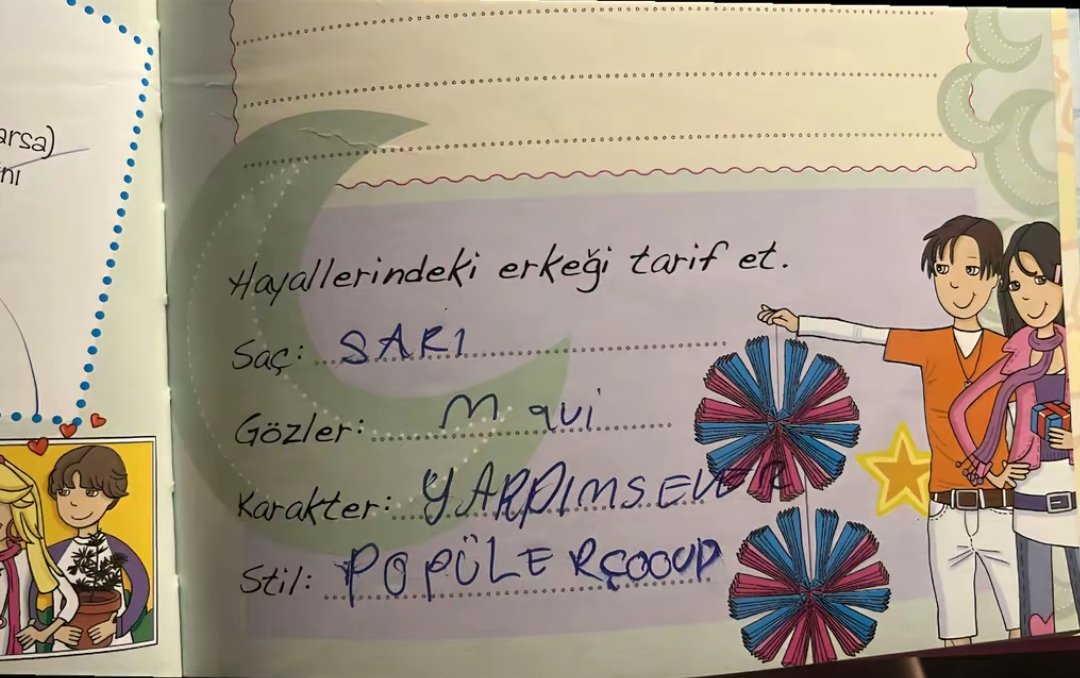 arsa)
ını
Hayallerindeki erkeği tarif et.
Saç: SARI
Gözler: M avi
Karakter: YARDIMSEVER
Stil: POPÜLERÇOOUP